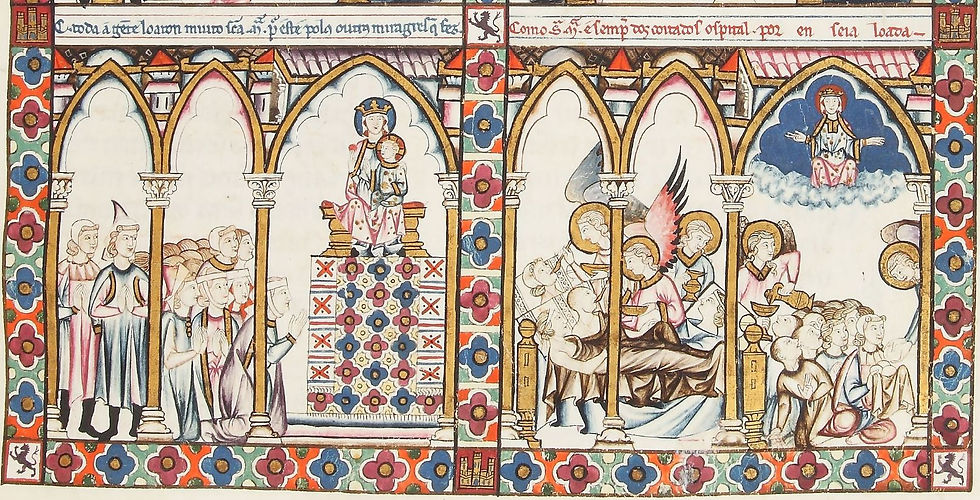 C. toda a gẽte loaron muito sc̃a. m̃. p̃ este ⁊ polos outros miragres q̃ fez.
Como .S. m̃. e ẽ sempre dos coitados ospital. por en seia loada